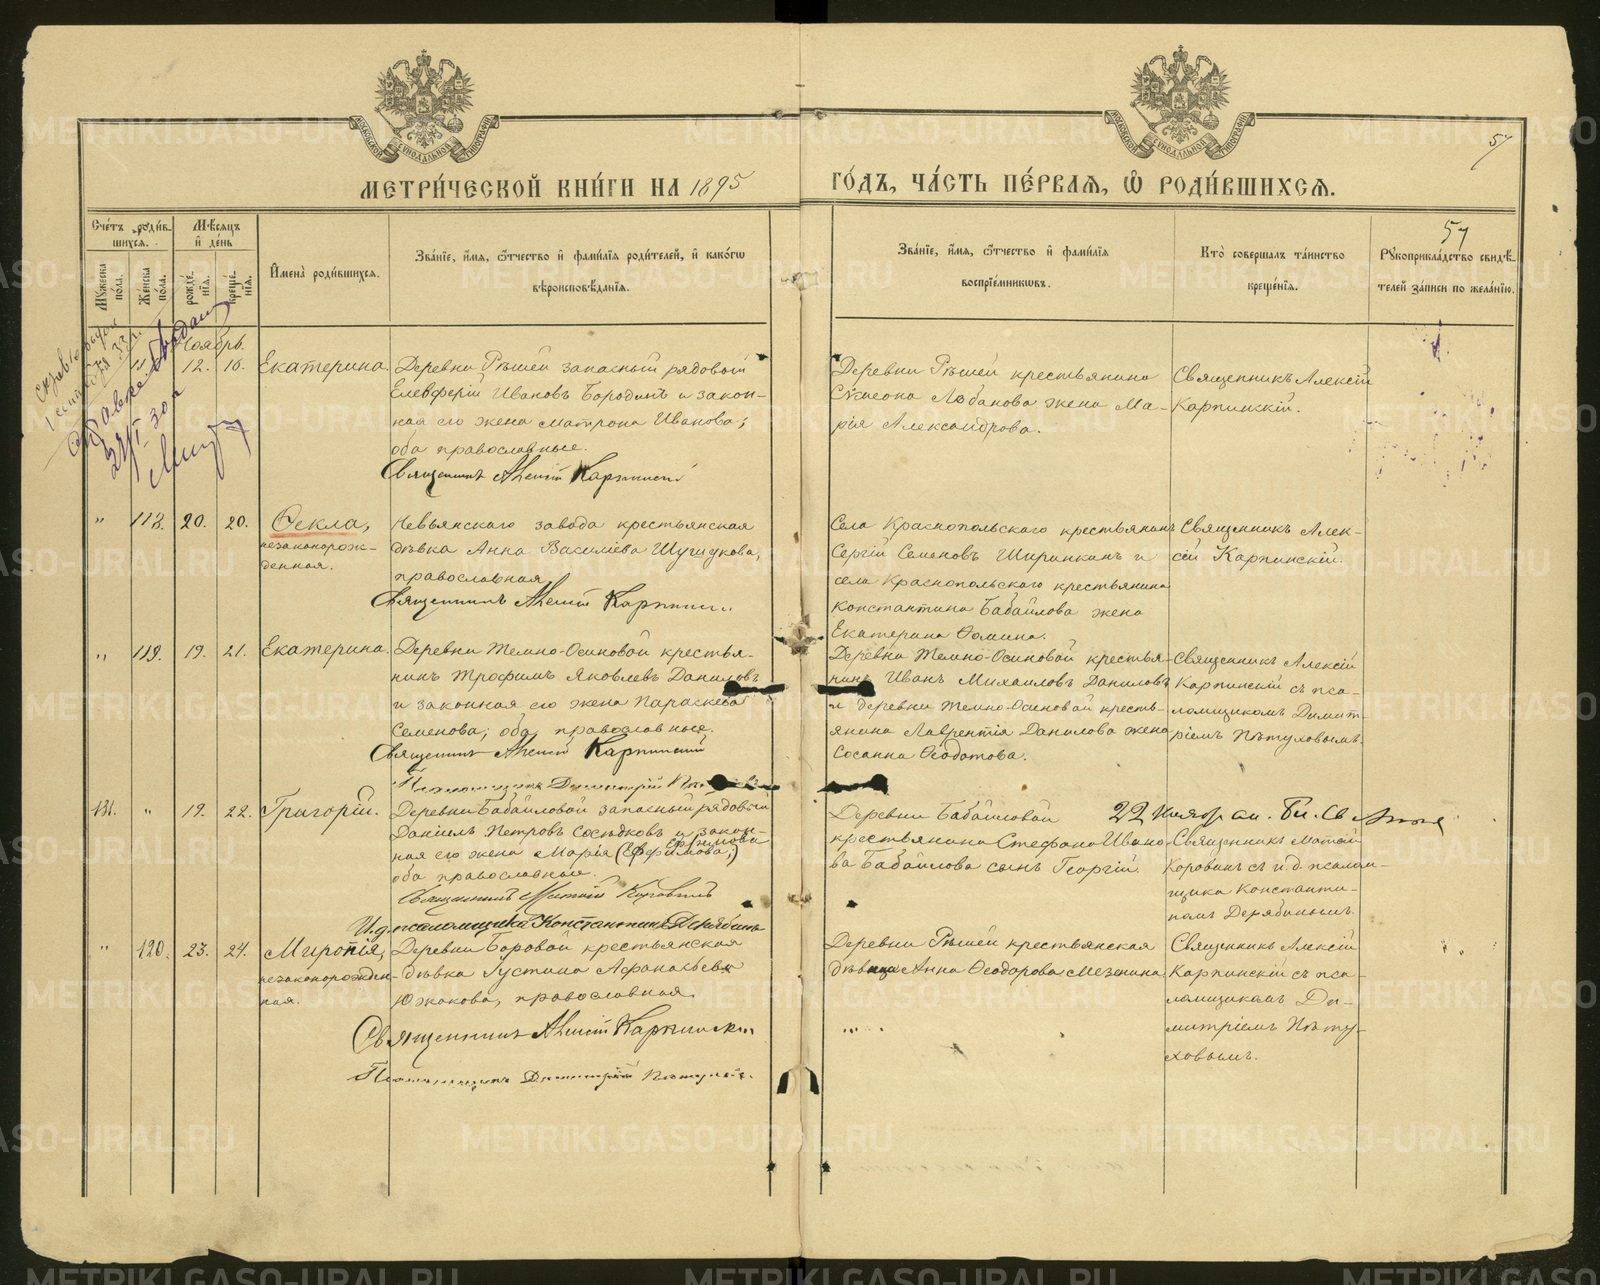 МЕТРИ́ЧЕСКОЙ КНИ́ГИ НА 1895
ГО́ДЪ, ЧА́СТЬ ПЕ́РВАЯ, Ѡ РОДИ́ВШИХСЯ.
57
57
Сче́тъ роди́в-
шихся.
Мѣ́сяцъ
и де́нь
Му́жеска по́ла.
Же́нска по́ла.
рожде́-
нїя.
креще́-
нїя.
Имена̀ роди́вшихся.
Зва́нїе, и́мя, ѻ́тчество и фами́лїя роди́телей, и како́гѡ
вѣроисповѣ́данїя.
Зва́нїе, и́мя, ѻ́тчество и фами́лїя
воспрїе́мникѡвъ.
Кто̀ соверша́лъ та́инство
креще́нїя.
Рꙋкоприкла́дство свидѣ́-
телей за́писи по жела́нїю.
Ноябрь.
12. 16. Екатерина.
Деревни Рѣшей запасный рядовой
Елевферій Ивановъ Бородинъ и закон-
ная его жена Матрона Иванова;
оба православные.
Священникъ Алексій Карпинскій
Деревни Рѣшей крестьянина
Сѵмеона Лобанова жена Ма-
рія Александрова.
Священникъ Алексій
Карпинскій.
" 118. 20. 20. Ѳекла,
незаконорож-
денная.
Невьянскаго завода крестьянская
дѣвка Анна Василіева
православная
Священникъ Алексій Карпинскій
Села Краснопольскаго крестьянинъ
Сергій Семеновъ Ширинкинъ и
села Краснопольскаго крестьянина
Константина Бабайлова жена
Екатерина Ѳомина.
Священникъ Алек-
сій Карпинскій.
" 119. 19. 21. Екатерина.
Деревни Темно-Осиновой крестья-
нинъ Трофимъ Яковлевъ Даниловъ
и законная его жена Параскева
Семенова; оба православные.
Священникъ Алексій Карпинскій
Псаломщикъ Димитрій
Деревни Темно-Осиновой крестья-
нинъ Иванъ Михаиловъ Даниловъ
и деревни Темно-Осиновой кресть-
янина Лаврентія Данилова жена
Сосанна Ѳеодотова.
Священникъ Алексій
Карпинскій съ пса-
ломщикомъ Димит-
ріемъ Пѣтуховымъ.
131. " 19. 22. Григорій.
Деревни Бабайловой запасный рядовой
Даніилъ Петровъ Сосѣдковъ и закон-
ная его жена Марія (Ефимова;)
Ефимова
оба православные.
Священникъ Матѳій Коровинъ
И.д. псаломщика Константинъ Дерябинъ
Деревни Бабайловой
крестьянина Стефана Ивано-
ва Бабайлова сынъ Георгій.
Священникъ Матѳій
Коровинъ съ и.д. псалом-
щика Константи-
номъ Дерябинымъ.
" 120. 23. 24. Миропія,
незаконорожден-
ная.
Деревни Боровой крестьянская
дѣвка Густина Афанасьева
Южакова, православная.
Священникъ Алексій Карпинскій
Псаломщикъ Димитрій Пѣтуховъ.
Деревни Рѣшей крестьянская
дѣвица Анна Ѳеодорова Мезенина
Священникъ Алексій
Карпинскій съ пса-
ломщикомъ Ди-
митріемъ Пѣту-
ховымъ.